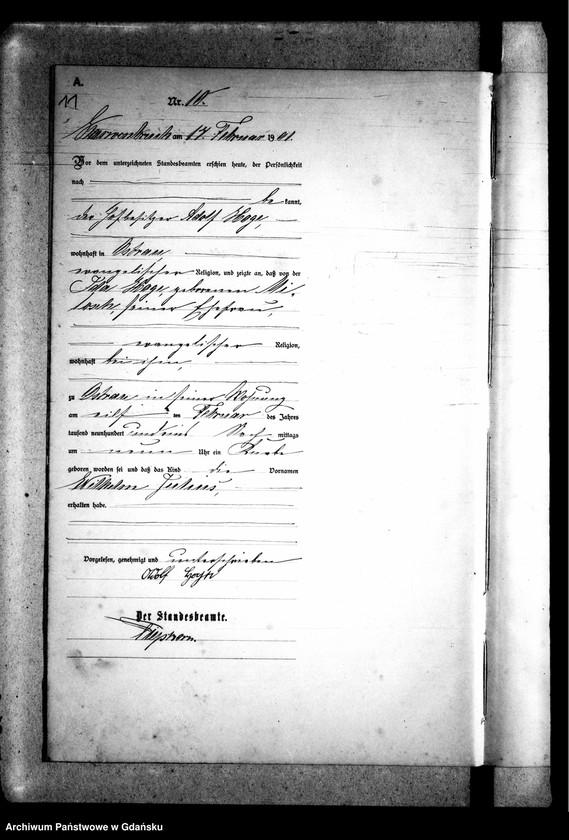 A.
11
Nr. 10.
am 17. Februar 1901.
Vor dem unterzeichneten Standesbeamten erschien heute, der Persönlichkeit
nach
be kannt,
der Hofbesitzer Adolf
wohnhaft in Ostrau,
evangelischer Religion, und zeigte an, daß von der
Ida geborenen
seiner Ehefrau,
evangelischer Religion,
wohnhaft bei ihm,
zu Ostrau in seiner Wohnung
am elf ten Februar des Jahres
tausend neunhundert und eins Nach mittags
um neun Uhr ein Knabe
geboren worden sei und daß das Kind die Vornamen
Wilhelm Julius,
erhalten habe.
Vorgelesen, genehmigt und unterschrieben
Adolf
Der Standesbeamte.
Archiwum Państwowe w Gdańsku